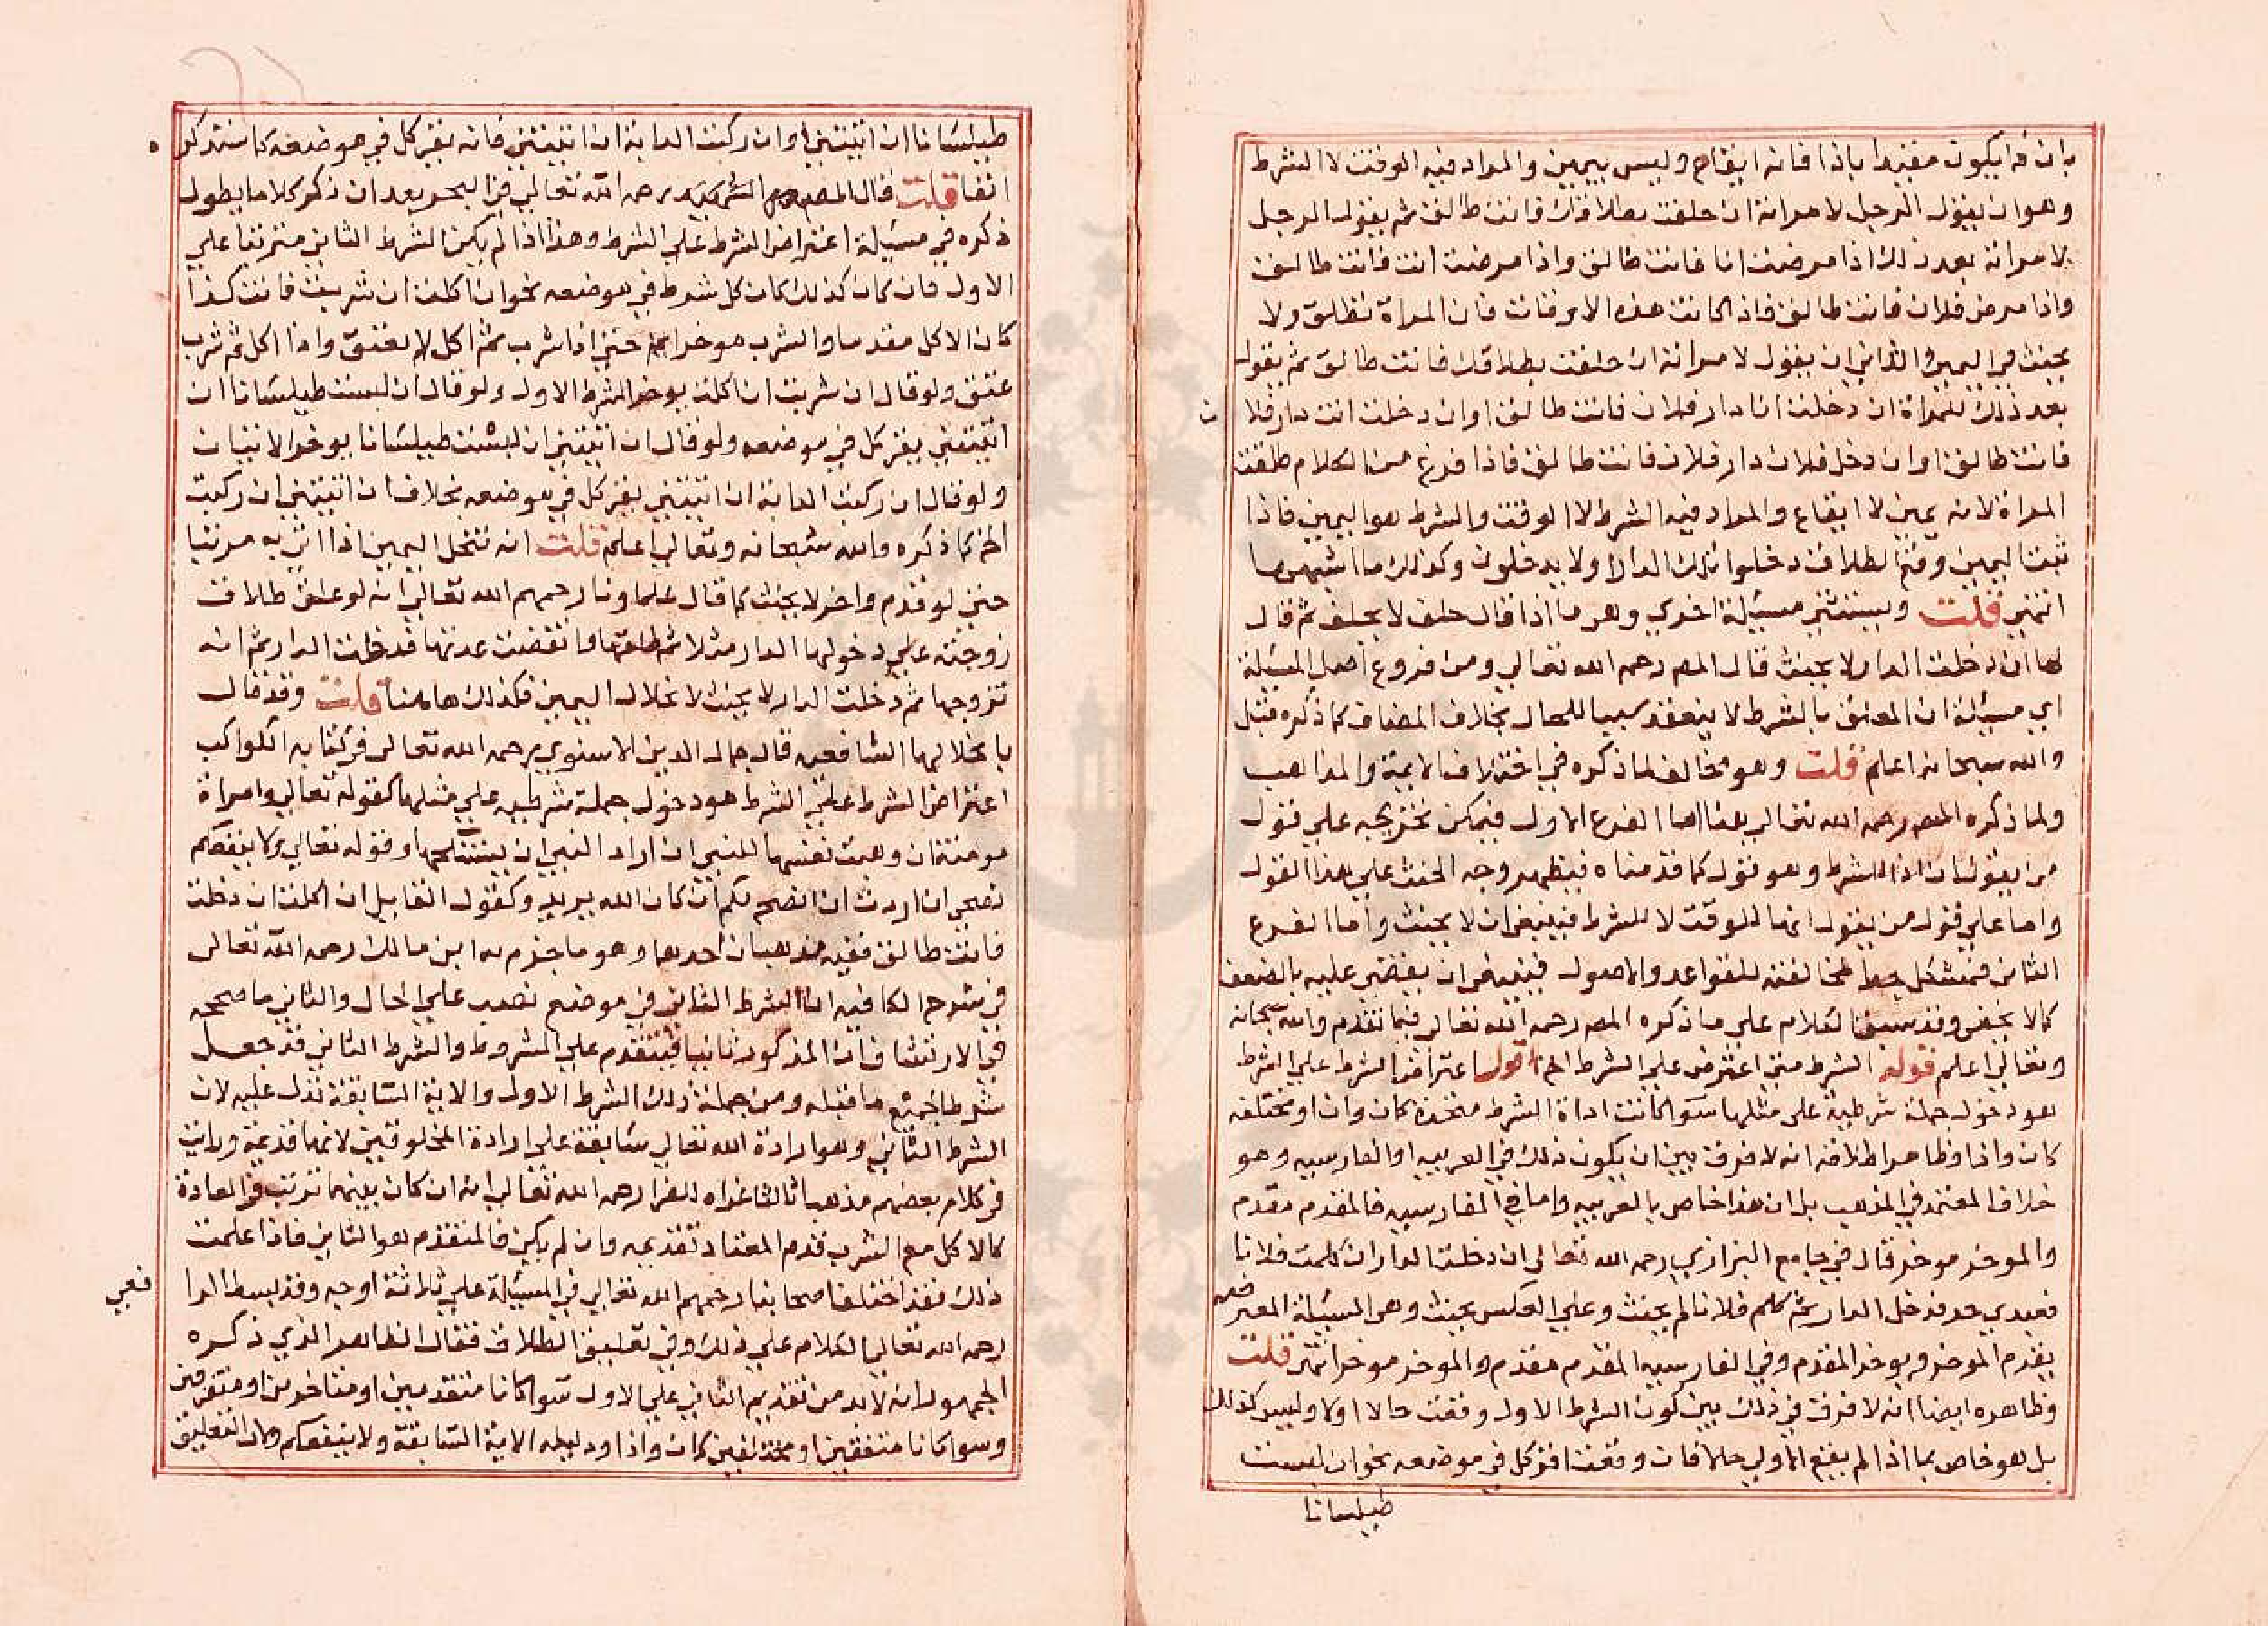 بان ذا يكون مقيدا باذا فانه ايقاع وليس بيمين والمراد فيه الوقت لا الشرط
وهو ان يقول الرجل لامراته ان حلفت بطلاقك فانت طالق ثم يقول الرجل
لامراته بعد ذلك اذا مرضت انا فانت طالق واذا مرضت انت فانت طالق
واذا مرض فلان فانت طالق فاذا كانت هذه الاوقات فان المراة تطلق ولا
يحنث في اليمين والثاني ان يقول لامراته ان حلفت بطلاقك فانت طالق ثم يقول
بعد ذلك للمراة ان دخلت انا دار فلان فانت طالق او ان دخلت انت دار فلا ن
فانت طالق او ان دخل فلان دار فلان فانت طالق فاذا فرغ من الكلام طلقت
المراة لانه يمين لا ايقاع والمراد فيه الشرط لا الوقت والشرط هو اليمين فاذا
ثبت اليمين وقع الطلاق دخلوا تلك الدار او لا يدخلون وكذلك ما اشبههما
انتهى قلت ويستثنى مسيلة اخري وهي ما اذا قال حلف لا يحلف ثم قال
لها ان دخلت الدار لا يحنث قال المص رحمه الله تعالي ومن فروع اصل المسيلة
اي مسيلة ان المعلق بالشرط لا ينعقد سببا للحال بخلاف المضاف كما ذكره قبل
والله سبحانه اعلم قلت وهو مخالف لما ذكره في اختلاف الايمة والمذاهب
ولما ذكره المص رحمه الله تعالي هنا اما الفرع الاول فيمكن تخريجه علي قول
من يقول ان اذا للشرط وهو قول كما قدمناه فيظهر وجه الحنث علي هذا القول
واما علي قول من يقول انها للوقت لا للشرط فينبغي ان لا يحنث واما الفرع
الثاني فمشكل جدا لمخالفته للقواعد والاصول فينبغي ان يقضي عليه بالضعف
كما لا يخفي وقد سبق الكلام علي ما ذكره المص رحمه الله تعالي فيما تقدم والله سبحانه
وتعالي اعلم قوله الشرط متي اعترض علي الشرط الخ اقول اعتراض الشرط علي الشرط
هو دخول جملة شرطية علي مثلها سوا كانت اداة الشرط متحدة كان وان او مختلفه
كان واذا وظاهر اطلاقه انه لا فرق بين ان يكون ذلك في العربيه او الفارسيه وهو
خلاف المعتمد في المذهب بل ان هذا خاص بالعربيه واما في الفارسيه فالمقدم مقدم
والموخر موخر قال في جامع البزازي رحمه الله تعالي ان دخلت الدار ان كلمت فلانا
فعبدي حر فدخل الدار ثم كلم فلانا لم يحنث وعلي العكس يحنث وهي المسيلة المعترضه
يقدم الموخر ويوخر المقدم وفي الفارسيه المقدم مقدم والموخر موخر انتهى قلت
وظاهره ايضا انه لا فرق في ذلك بين كون الشرط الاول وقعت حالا او لا وليس كذلك
بل هو خاص بما اذا لم يقع الاولي حلا فان وقعت اقر كل في موضعه نحو ان لبست
طيلسانا
طيلسانا ان اتيتني او ان ركبت الدابة ان اتيتني فانه يقر كل في موضعه كما ستذكر ه
انفا قلت قال المص رحمه الله تعالي في البحر بعد ان ذكر كلاما يطول
ذكره في مسيلة اعتراض الشرط علي الشرط وهذا اذا لم يكن الشرط الثاني مترتبا علي
الاول فان كان كذلك كان كل شرط في موضعه نحو ان اكلت ان شربت فانت كذا
كان الاكل مقدما والشرب موخرا حتي اذا شرب ثم اكل لم يعتق واذا اكل ثم شرب
عتق ولو قال ان شربت ان اكلت يوخر الشرط الاول ولو قال ان لبست طيلسانا ان
اتيتني يقر كل في موضعه ولو قال ان اتيتني ان لبست طيلسانا يوخر الاتيان
ولو قال ان ركبت الدابة ان اتيتني يقر كل في موضعه بخلاف ان اتيتني ان ركبت
الخ كما ذكره والله سبحانه وتعالي اعلم قلت انه تنحل اليمين اذا اتي به مرتبا
حتي لو قدم واخر لا يحنث كما قال علماونا رحمهم الله تعالي انه لو علق طلاق
زوجته علي دخولها الدار مثلا ثم طلقها وانقضت عدتها فدخلت الدار ثم انه
تزوجها ثم دخلت الدار لا يحنث لانحلال اليمين فكذلك هاهنا قلت وقد قال
بانحلالها الشافعي قال جمال الدين الاسنوي رحمه الله تعالي في كتابه الكواكب
اعتراض الشرط علي الشرط هو دخول جملة شرطيه علي مثلها كقوله تعالي وامراة
مومنة ان وهبت نفسها للنبي ان اراد النبي ان يستنكحها وقوله تعالي ولا ينفعكم
نصحي ان اردت ان انصح لكم ان كان الله يريد وكقول القايل ان اكلت ان دخلت
فانت طالق ففيه مذهبان احدهما وهو ما جزم به ابن مالك رحمه الله تعالي
في شرح الكافيه ان الشرط الثاني في موضع نصب علي الحال والثاني ما صححه
في الارتشاف ان المذكور ثانيا فيتقدم علي المشروط والشرط الثاني قد جعل
شرطا لجميع ما قبله ومن جملة ذلك الشرط الاول والاية السابقة تدل عليه لان
الشرط الثاني وهو ارادة الله تعالي سابقة علي ارادة المخلوقين لانها قديمة ورايت
في كلام بعضهم مذهبا ثالثا عزاه للفرا رحمه الله تعالي انه ان كان بينهما ترتب في العادة
كالاكل مع الشرب قدم المعتاد تقديمه وان لم يكن فالمتقدم هو الثاني فاذا علمت
ذلك فقد اختلف اصحابنا رحمهم الله تعالي في المسيلة علي ثلاثة اوجه وقد بسط الرا فعي
رحمه الله تعالي الكلام علي ذلك وفي تعليق الطلاق فقال الظاهر الذي ذكره
الجمهور انه لابد من تقديم الثاني علي الاول سوا كانا متقدمين او متاخرين او متفرقين
وسوا كانا متفقين او مختلفين كان واذا ودليله الاية السابقة ولا ينفعكم ولان التعليق